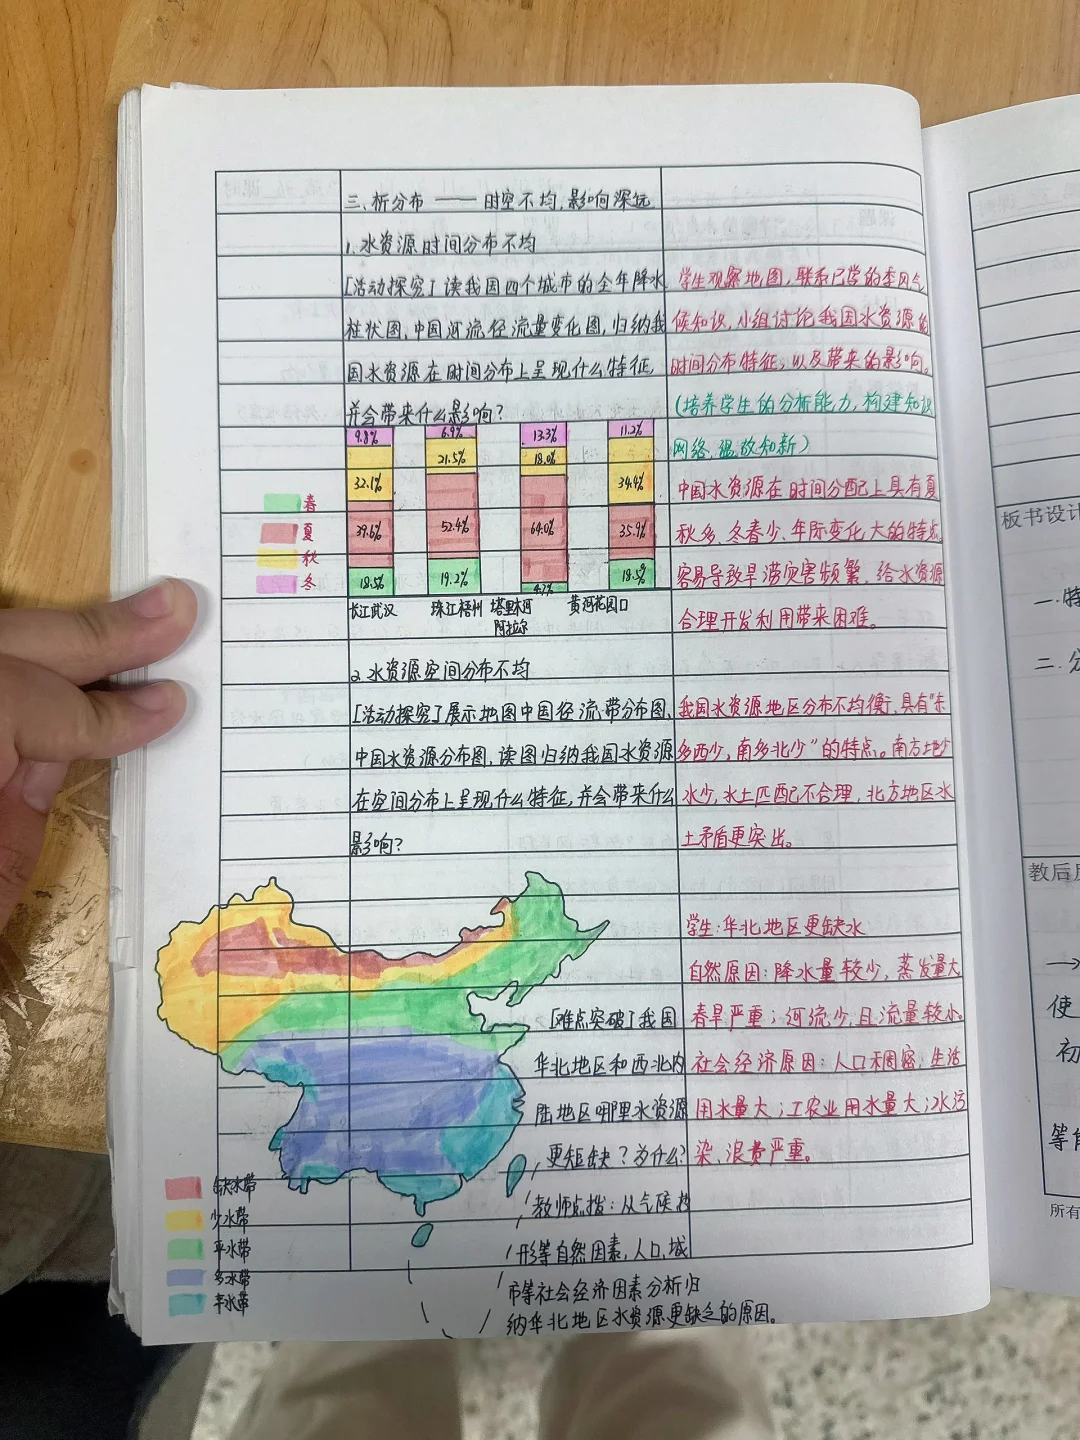 三、析分布——时空不均,影响深远
1.水资源时间分布不均
[活动探究]读我国四个城市的全年降水
柱状图,中国河流径流量变化图,归纳我
国水资源在时间分布上呈现什么特征,
并会带来什么影响?
学生观察地图,联系已学的季风气
候知识,小组讨论我国水资源的
时间分布特征,以及带来的影响。
(培养学生的分析能力,构建知识
网络,温故知新)
中国水资源在时间分配上具有夏
秋多、冬春少、年际变化大的特点,
容易导致旱涝灾害频繁,给水资源
合理开发利用带来困难。
9.8% 6.9% 13.3% 11.2%
32.1% 21.5% 18.0% 34.4%
39.6% 52.4% 64.0% 35.9%
18.5% 19.2% 4.7% 18.5%
春
夏
秋
冬
长江武汉 珠江梧州 塔里木河 黄河花园口
阿拉尔
2.水资源空间分布不均
[活动探究]展示地图中国径流带分布图、
中国水资源分布图,读图归纳我国水资源
在空间分布上呈现什么特征,并会带来什么
影响?
我国水资源地区分布不均衡,具有“东
多西少,南多北少”的特点。南方地少
水少,水土匹配不合理,北方地区水
土矛盾更突出。
[难点突破]我国
华北地区和西北内
陆地区哪里水资源
更短缺?为什么?
教师点拨:从气候、地
形等自然因素,人口,城
市等社会经济因素分析归
纳华北地区水资源更缺乏的原因。
学生:华北地区更缺水
自然原因:降水量较少,蒸发量大
春旱严重;河流少,且流量较小。
社会经济原因:人口稠密,生活
用水量大;工农业用水量大;水污
染、浪费严重。
缺水带
少水带
平水带
多水带
丰水带
板书设计
一.特
二.分
教后反
→
使
初
等
所有